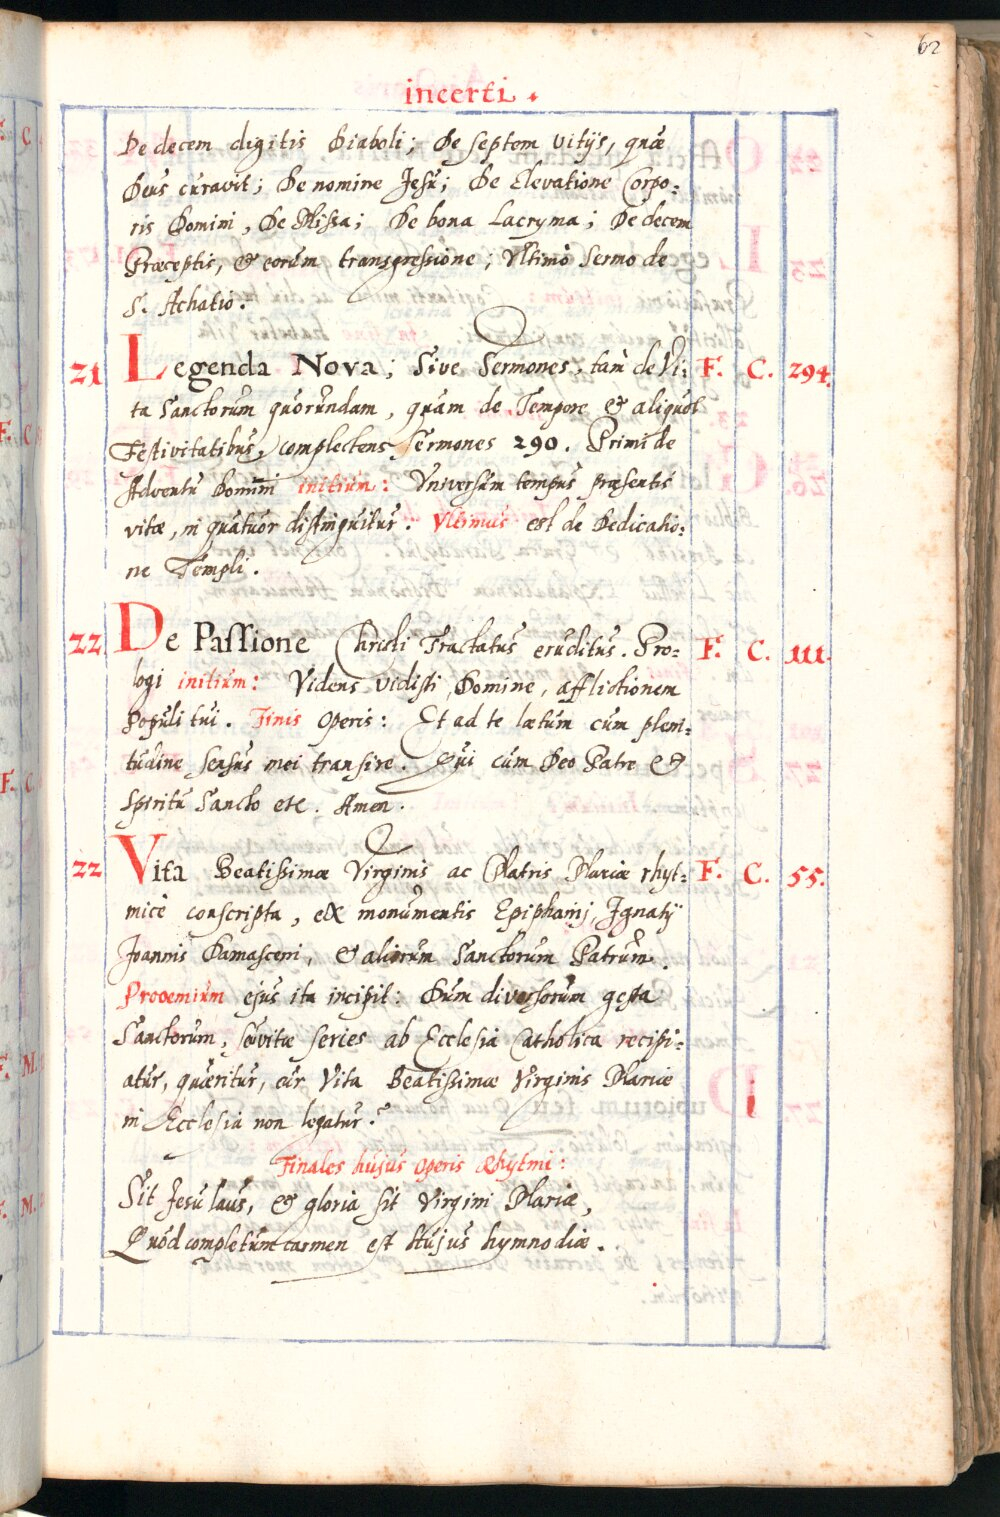 62
incerti.
De decem digitis Diaboli; De septem Vitijs, quæ
Deus curavit; De nomine Jesu; De Elevatione Corpo=
ris Domini, De Missa; De bona Lacryma; De decem
Præceptis, & eorum transgressione; Ultimò Sermo de
S. Achatio.
21 Legenda Nova; Sive Sermones, tam de Vi= F. C. 294.
ta Sanctorum quorundam, quam de Tempore & aliquot
Festivitatibus, complectens Sermones 290. Primi de
Adventu Domini initium: Vniversum tempus præsentis
vitæ, in quatuor distinguitur. Vltimus est de Dedicatio=
ne Templi.
22 De Passione Christi Tractatus eruditus. Pro= F. C. 111.
logi initium: Videns vidisti Domine, afflictionem
Populi tui. Finis Operis: Et ad te lætum cum pleni=
tudine sensus mei transire. Qui cum Deo Patre &
Spiritu Sancto etc. Amen.
22 Vita Beatissimæ Virginis ac Matris Mariæ rhyt= F. C. 55.
micè conscripta, ex monumentis Epiphanij, Ignatij
Joannis Damasceni, & aliorum Sanctorum Patrum.
Prooemium ejus ita incipit: Dum diversorum gesta
Sanctorum, seu vitæ series ab Ecclesia Catholica recipi=
atur, quæritur, cur Vita Beatissimæ Virginis Mariæ
in Ecclesia non legatur?
Finales hujus Operis Rhytmi:
Sit Jesu laus, & gloria sit Virgini Mariæ,
Quòd completum carmen est Hujus hymnodiæ.